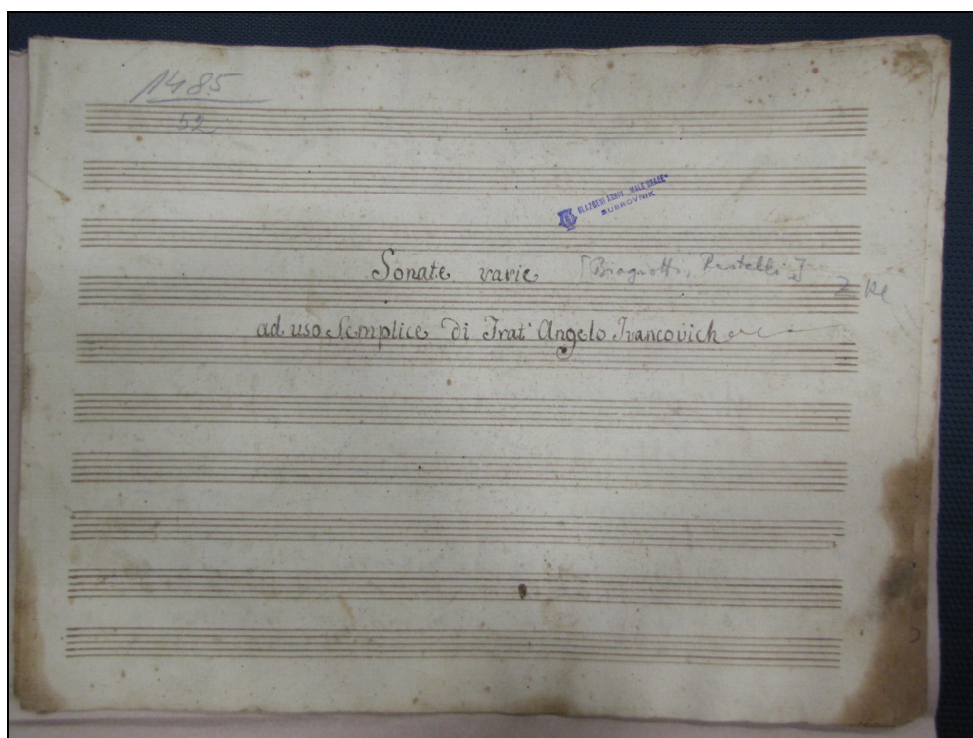 1485
52
GLAZBENI ARHIV "MALE BRAĆE"
DUBROVNIK
Sonate varie [Biagnotti, Pestelli]
ad uso Semplice di Frat' Angelo Ivancovich